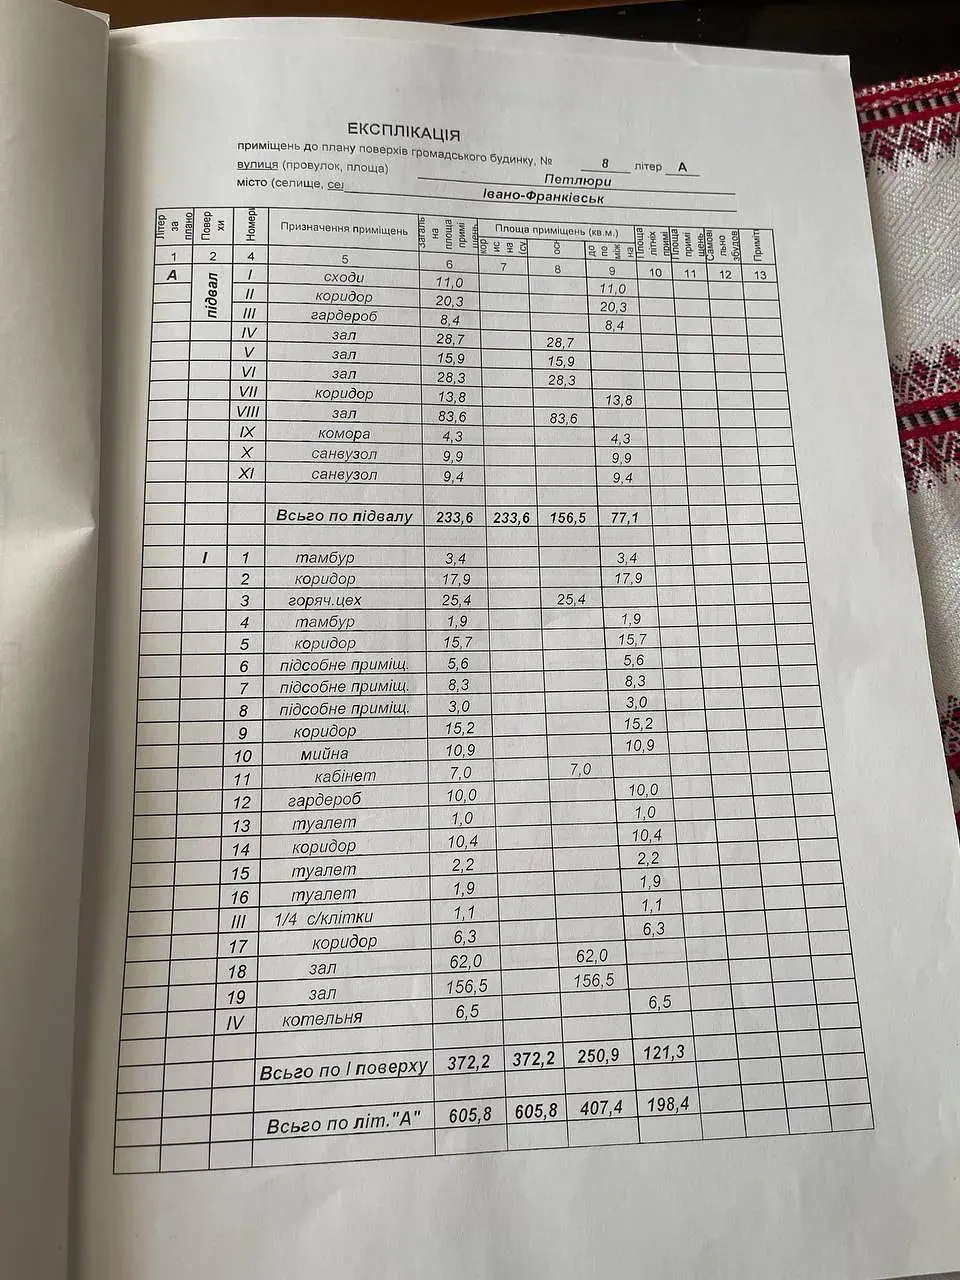 ЕКСПЛІКАЦІЯ
приміщень до плану поверхів громадського будинку, № 8 літер А
вулиця (провулок, площа) Петлюри
місто (селище, сел Івано-Франківськ
Літер за плано Повер хи Номери Призначення приміщень загаль на площа примі щень Площа приміщень (кв.м.) Площа літніх примі Площа примі щень Самові льно збудов Приміт
кор ис на (су осн до по між на
1 2 4 5 6 7 8 9 10 11 12 13
А підвал I сходи 11,0 11,0
II коридор 20,3 20,3
III гардероб 8,4 8,4
IV зал 28,7 28,7
V зал 15,9 15,9
VI зал 28,3 28,3
VII коридор 13,8 13,8
VIII зал 83,6 83,6
IX комора 4,3 4,3
X санвузол 9,9 9,9
XI санвузол 9,4 9,4
Всьго по підвалу 233,6 233,6 156,5 77,1
I 1 тамбур 3,4 3,4
2 коридор 17,9 17,9
3 горяч.цех 25,4 25,4
4 тамбур 1,9 1,9
5 коридор 15,7 15,7
6 підсобне приміщ. 5,6 5,6
7 підсобне приміщ. 8,3 8,3
8 підсобне приміщ. 3,0 3,0
9 коридор 15,2 15,2
10 мийна 10,9 10,9
11 кабінет 7,0 7,0
12 гардероб 10,0 10,0
13 туалет 1,0 1,0
14 коридор 10,4 10,4
15 туалет 2,2 2,2
16 туалет 1,9 1,9
III 1/4 с/клітки 1,1 1,1
17 коридор 6,3 6,3
18 зал 62,0 62,0
19 зал 156,5 156,5
IV котельня 6,5 6,5
Всьго по I поверху 372,2 372,2 250,9 121,3
Всьго по літ."А" 605,8 605,8 407,4 198,4